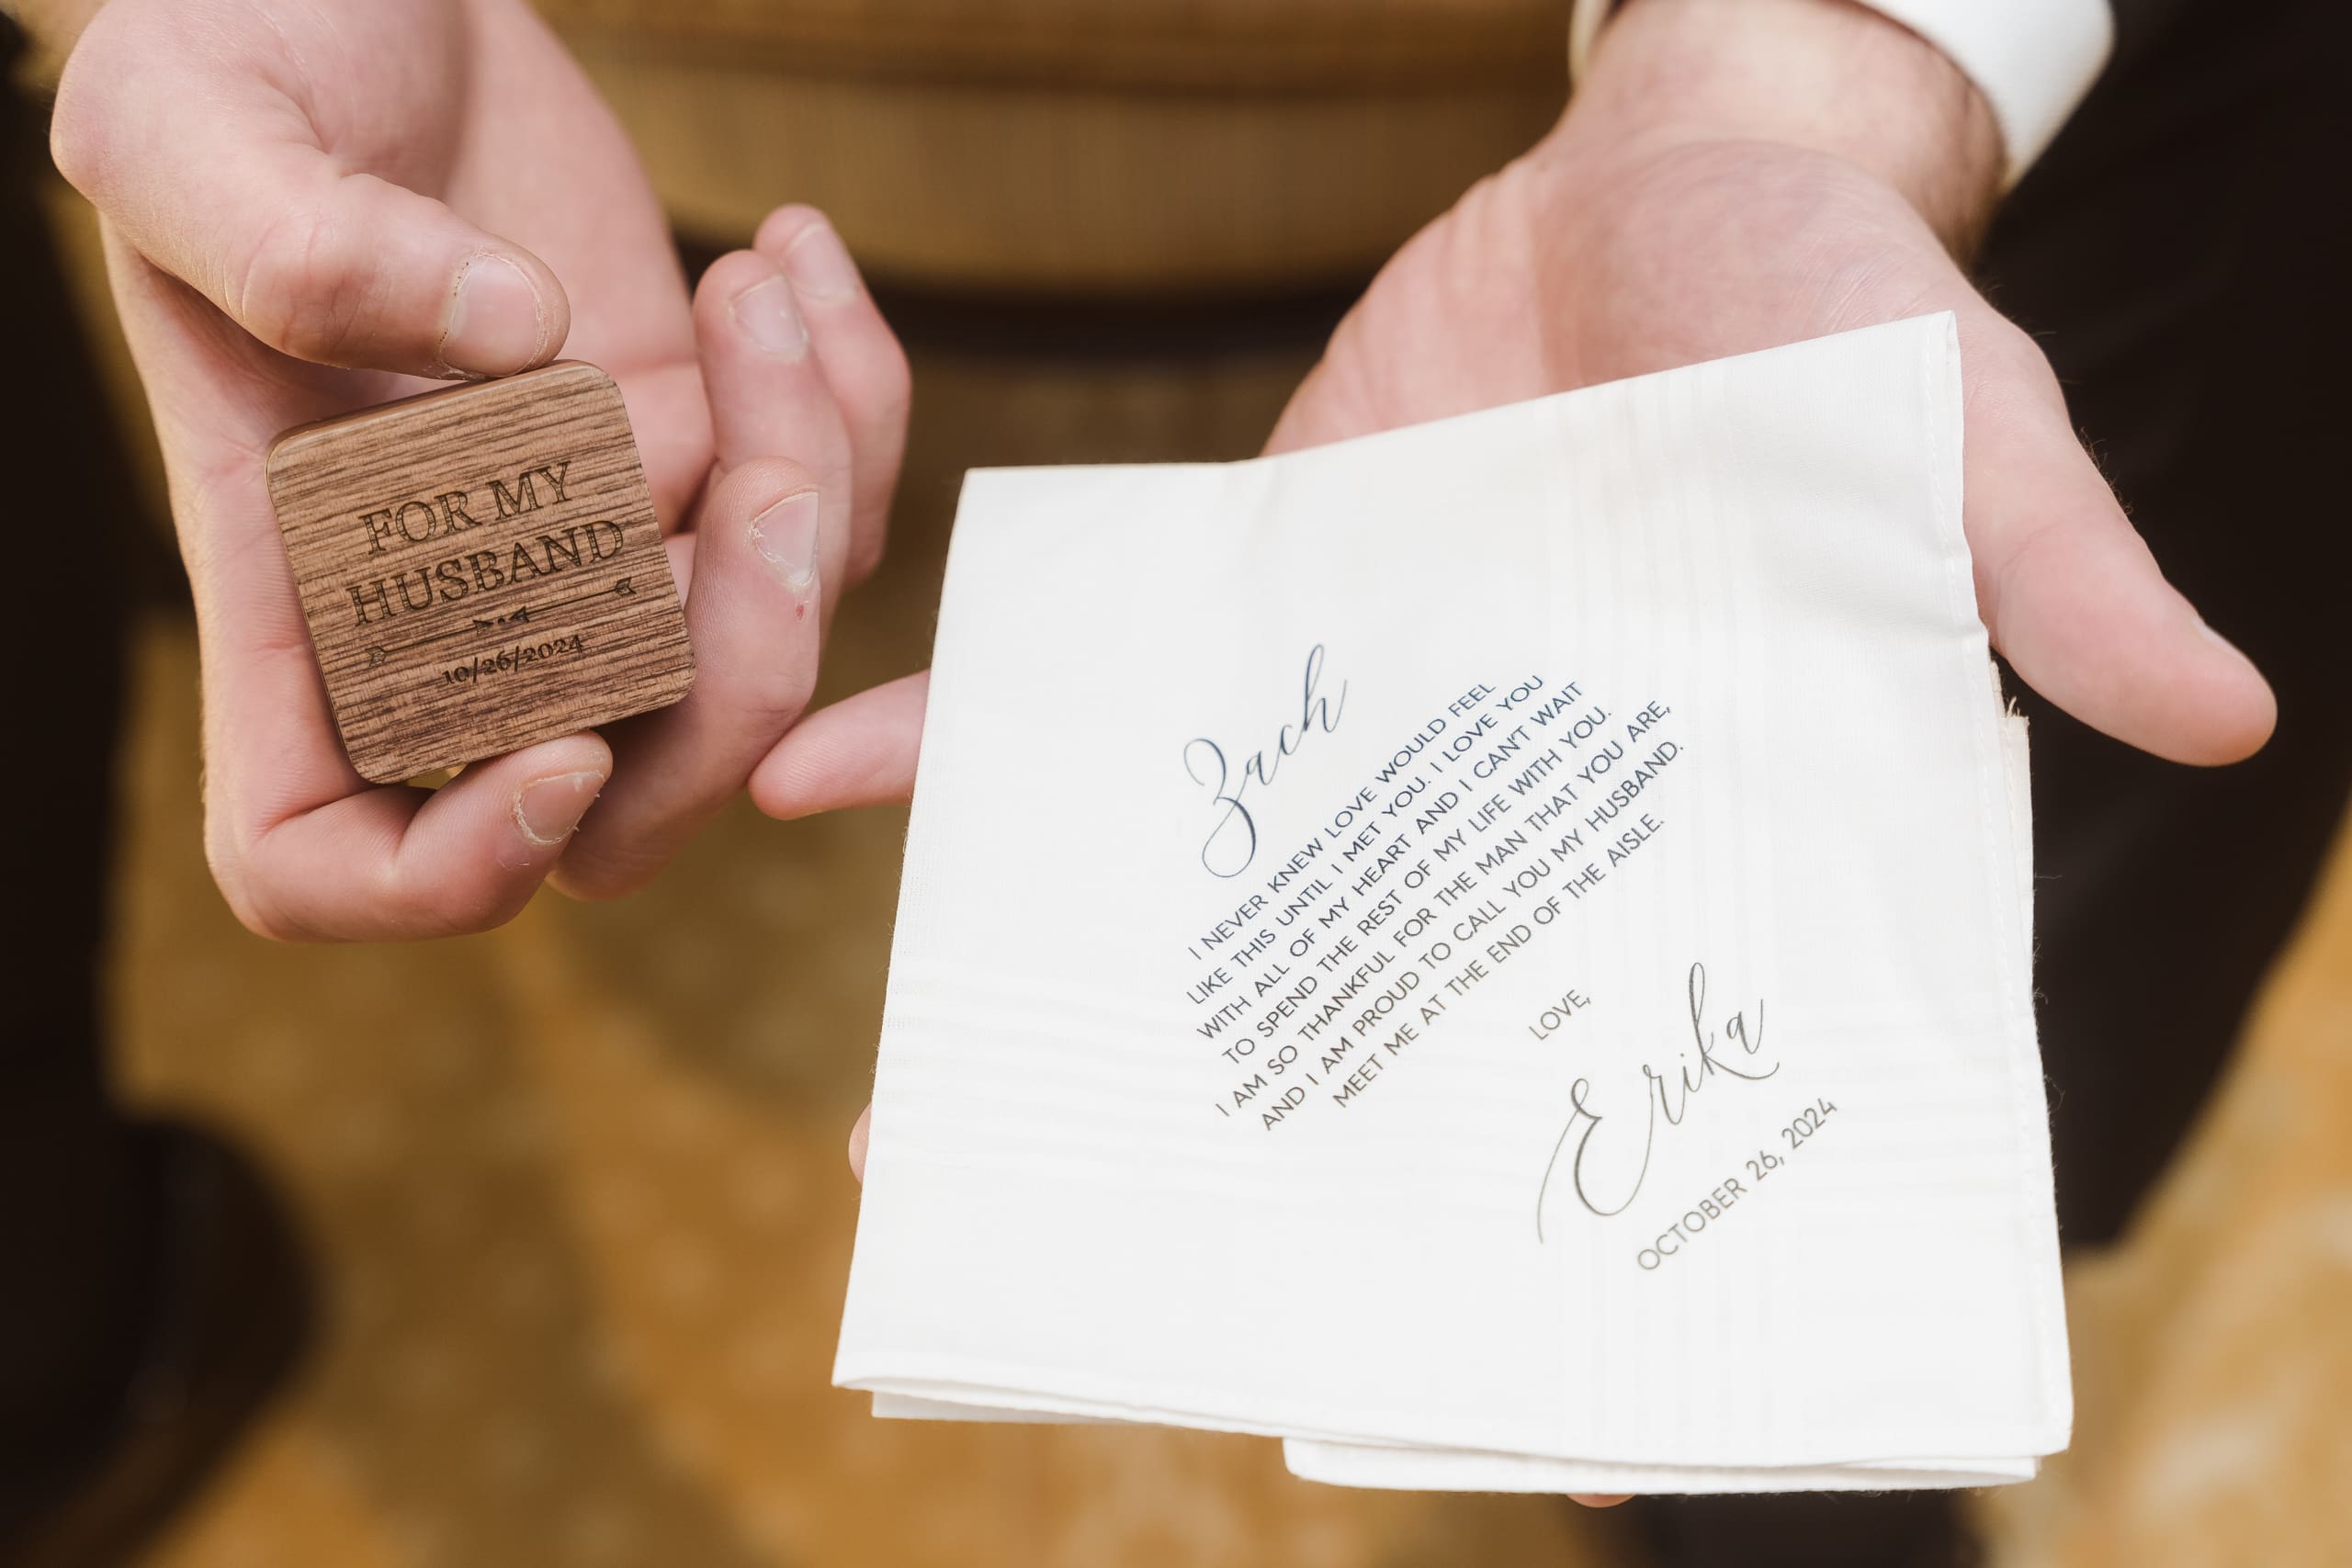 FOR MY
HUSBAND
10/26/2024
Zach
I NEVER KNEW LOVE WOULD FEEL
LIKE THIS UNTIL I MET YOU. I LOVE YOU
WITH ALL OF MY HEART AND I CAN'T WAIT
TO SPEND THE REST OF MY LIFE WITH YOU.
I AM SO THANKFUL FOR THE MAN THAT YOU ARE,
AND I AM PROUD TO CALL YOU MY HUSBAND.
MEET ME AT THE END OF THE AISLE.
LOVE,
Erika
OCTOBER 26, 2024